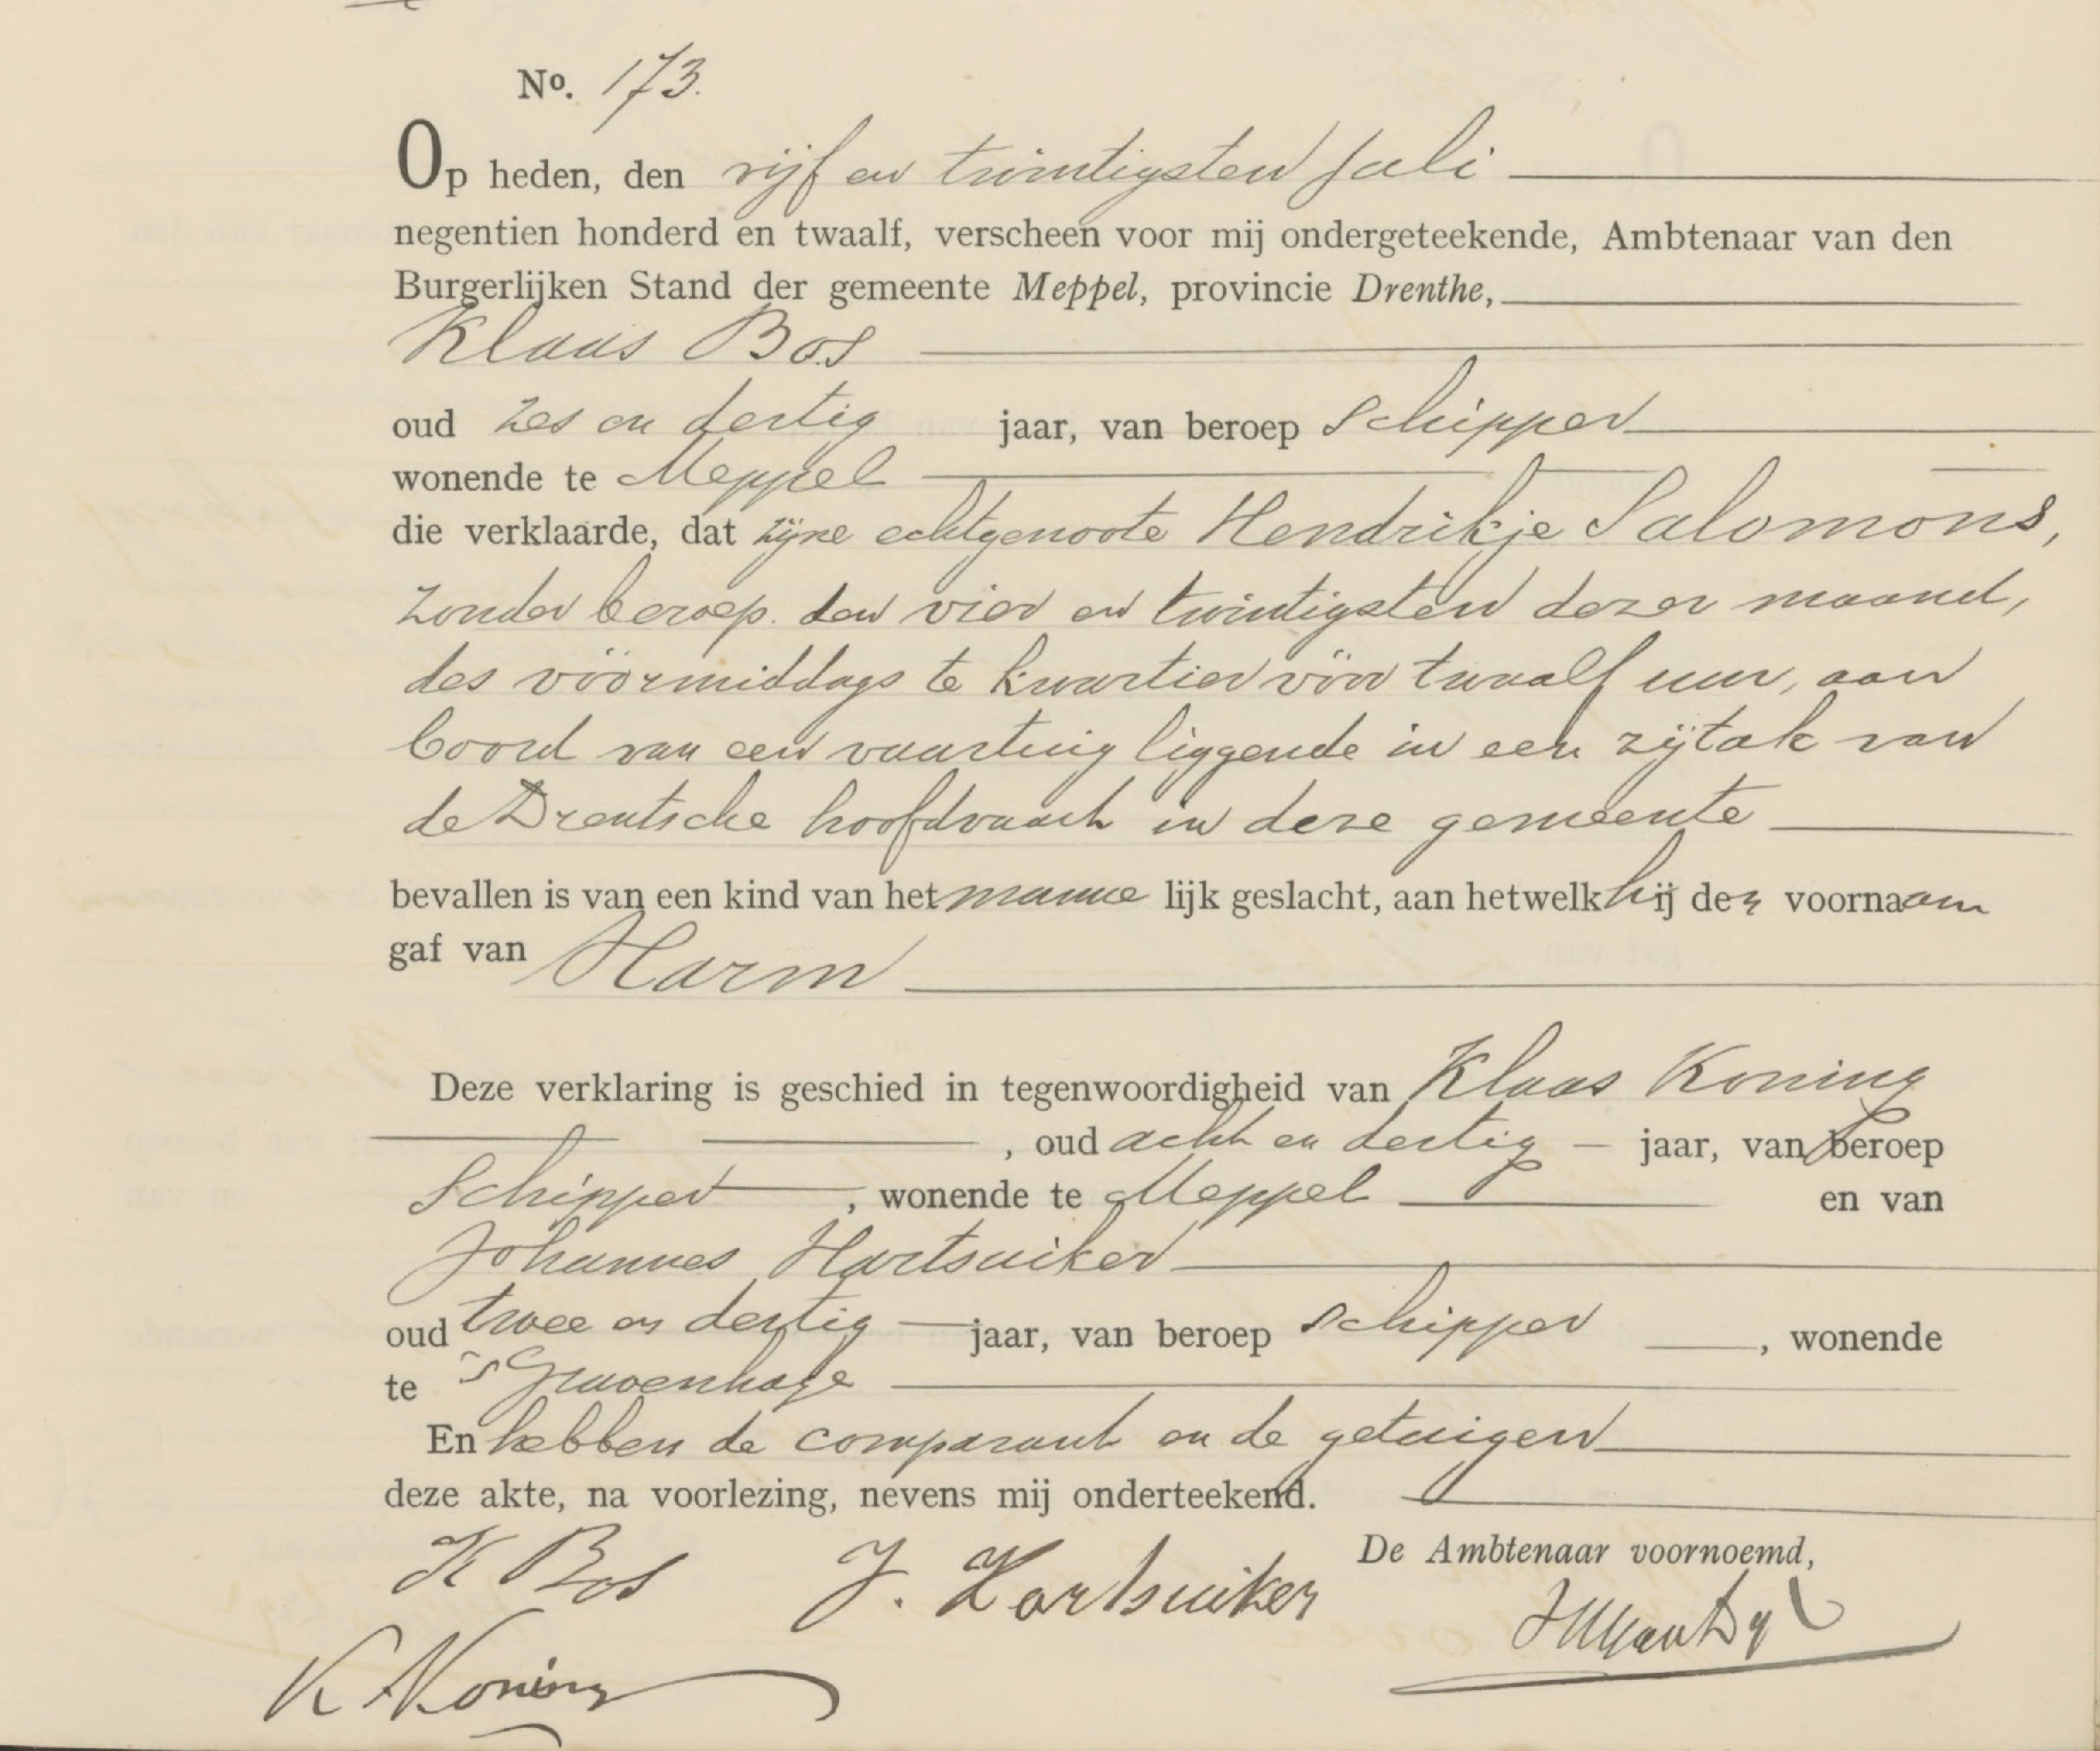 No. 173.
Op heden, den vijf en twintigsten Juli
negentien honderd en twaalf, verscheen voor mij ondergeteekende, Ambtenaar van den
Burgerlijken Stand der gemeente Meppel, provincie Drenthe,
Klaas Bos
oud zes en dertig jaar, van beroep schipper
wonende te Meppel
die verklaarde, dat zijne echtgenoote Hendrikje Salomons,
zonder beroep. den vier en twintigsten dezer maand,
des vóórmiddags te kwartier vóór twaalf uur, aan
boord van een vaartuig liggende in een zijtak van
de Drentsche hoofdvaart in deze gemeente
bevallen is van een kind van het mannelijk geslacht, aan hetwelk hij den voornaam
gaf van Harm
Deze verklaring is geschied in tegenwoordigheid van Klaas Koning
, oud acht en dertig – jaar, van beroep
Schipper , wonende te Meppel en van
Johannes Hartsuiker
oud twee en dertig jaar, van beroep schipper , wonende
te 's Gravenhage
En hebben de comparant en de getuigen
deze akte, na voorlezing, nevens mij onderteekend.
De Ambtenaar voornoemd,
K Bos J. Hartsuiker
K Koning